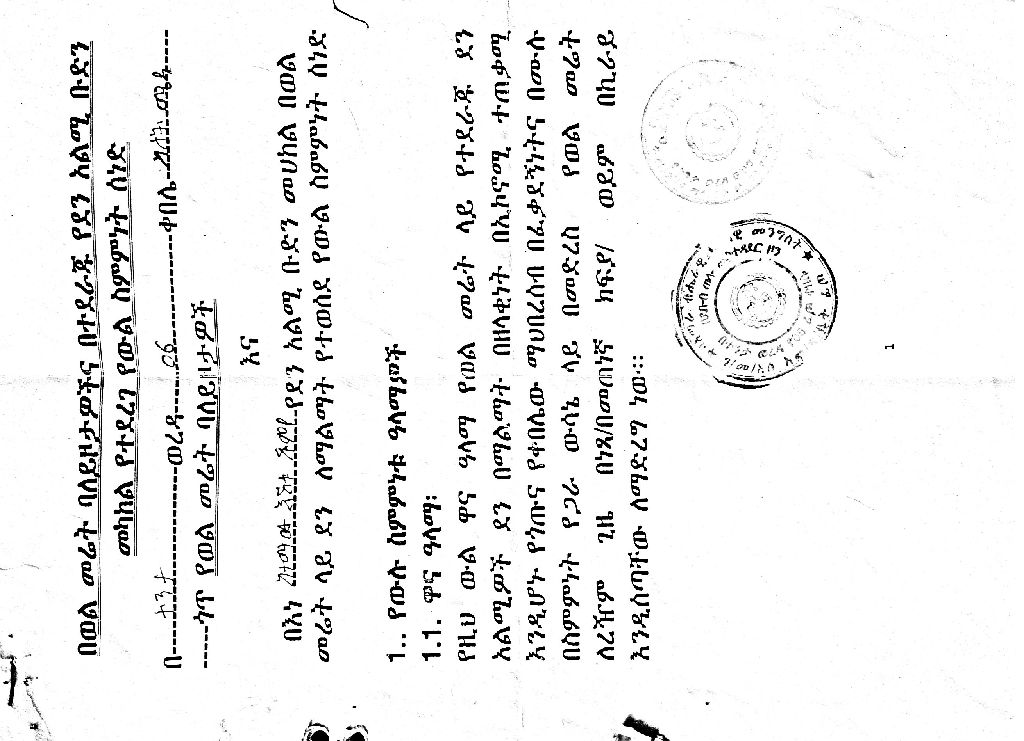 በወል መሬት ባለይዞታዎችና በተደራጁ የደን አልሚ ቡድን
መካከል የተደረገ የውል ስምምነት ሰነድ
በ-----ተንታ-----ወረዳ-----06-----ቀበሌ
-----ጎጥ የወል መሬት ባለይዞታዎች
እና
በእነ የደን አልሚ ቡድን መሀከል በወል
መሬት ላይ ደን ለማልማት የተወሰደ የውል ስምምነት ሰነድ
1.. የውሉ ስምምነቱ ዓላማዎች
1.1. ዋና ዓላማ፡
የዚህ ውል ዋና ዓላማ የወል መሬት ላይ የተደራጁ ደን
አልሚዎች ደን በማልማት በዘላቂነት በኢኮኖሚ ተጠቃሚ
እንዲሆኑ የጎጡና የቀበሌው ማህበረሰብ በፈቃደኝነትና በሙሉ
በስምምነት የጋራ ውሳኔ ላይ በመድረስ የወል መሬት
ለረሽም ጊዜ በነጻ/በመጠነኛ ክፍያ/ ወይም በኪራይ
እንዲሰጣቸው ለማድረግ ነው፡፡፡
1